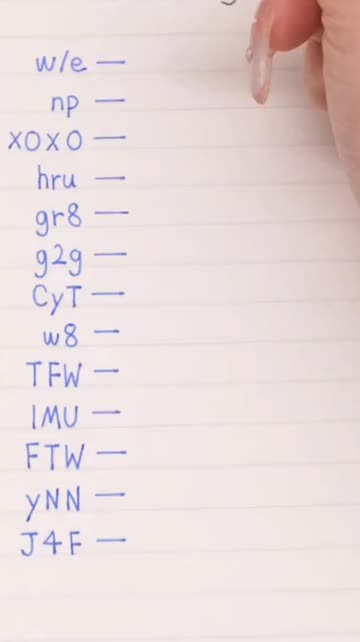 w/e —
np —
XOXO —
hru —
gr8 —
g2g —
CyT —
w8 —
TFW —
IMU —
FTW —
yNN —
J4F —